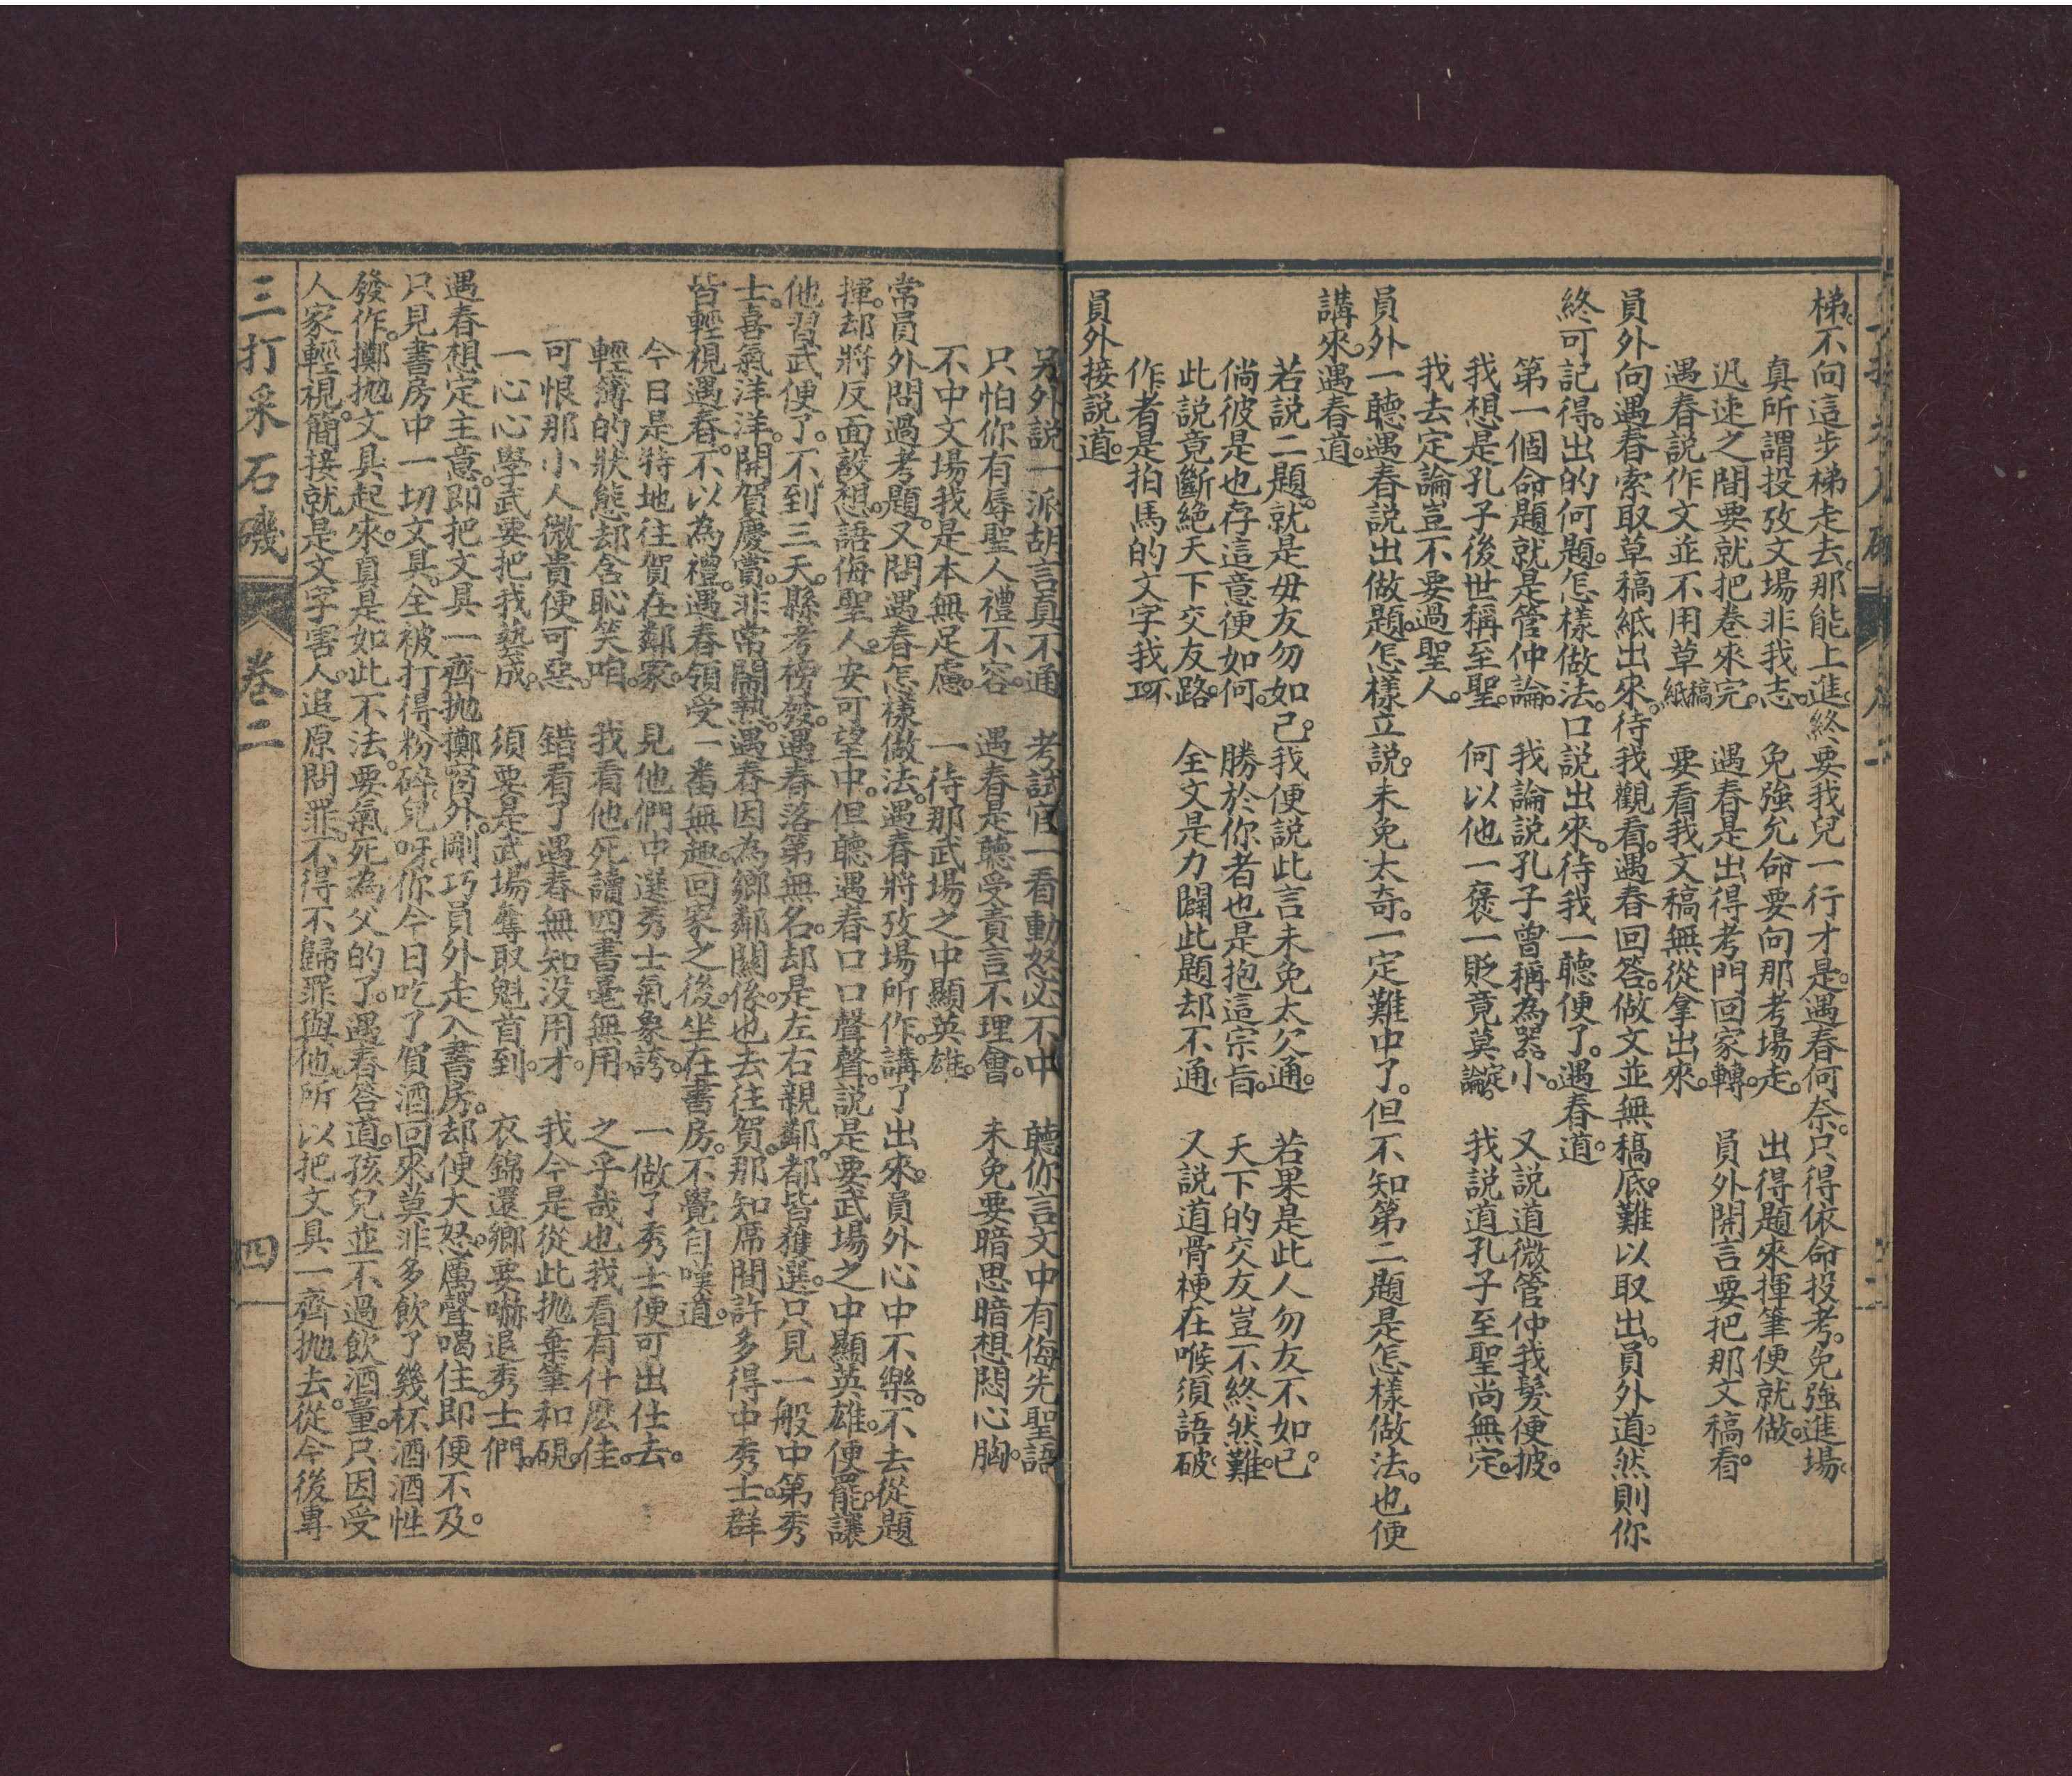 梯。不向這步梯走去。那能上進。終要我兒一行才是。遇春何奈。只得依命投考。免強進場。
真所謂投攷文場非我志。 免強允命要向那考場走。 出得題來揮筆便就做。
迅速之間要就把卷來完。 遇春是出得考門回家轉。 員外開言要把那文稿看。
遇春説作文並不用草稿紙 要看我文稿無從拿出來。
員外向遇春索取草稿紙出來。待我觀看。遇春回答。做文並無稿底。難以取出。員外道。然則你
終可記得。出的何題。怎樣做法。口説出來。待我一聽便了。遇春道。
第一個命題就是管仲論。 我論説孔子曾稱為器小。 又説道微管仲我髮便披。
我想是孔子後世稱至聖。 何以他一褒一貶竟莫定論。 我説道孔子至聖尚無定。
我去定論豈不要過聖人。
員外一聽遇春説出做題。怎樣立説。未免太奇。一定難中了。但不知第二題是怎樣做法。也便
講來。遇春道。
若説二題。就是毋友勿如己。 我便説此言未免太欠通。 若果是此人勿友不如己。
倘彼是也存這意便如何。 勝於你者也是抱這宗旨。 天下的交友豈不終然難。
此説竟斷絕天下交友路。 全文是力闢此題却不通。 又説道骨梗在喉須語破。
作者是拍馬的文字我不
員外接説道。
另外説一派胡言真不通 考試官一看動怒必不中 聽你言文中有侮先聖語
只怕你有辱聖人禮不容。 遇春是聽受責言不理會。 未免要暗思暗想悶心胸。
不中文場我是本無足慮。 一待那武場之中顯英雄。
常員外問過考題。又問遇春怎樣做法。遇春將攷場所作。講了出來。員外心中不樂。不去從題
揮。却將反面設想。語侮聖人。安可望中。但聽遇春口口聲聲。説是要武場之中顯英雄。便罷。讓
他習武便了。不到三天。縣考榜發。遇春落第無名。却是左右親鄰。都皆獲選。只見一般中第秀
士。喜氣洋洋。開賀慶賞。非常鬧熱。遇春因為鄉鄰關係。也去往賀。那知席間許多得中秀士。群
皆輕視遇春。不以為禮。遇春領受一番無趣。回家之後。坐在書房。不覺自嘆道。
今日是特地往賀在鄰家。 見他們中選秀士氣象誇。 一做了秀士便可出仕去。
輕簿的狀態却含恥笑咱。 我看他死讀四書毫無用。 之乎哉也我看有什麽佳。
可恨那小人微貴便可惡。 錯看了遇春無知没用才。 我今是從此拋棄筆和硯。
一心心學武要把我藝成。 須要是武場奪取魁首到。 衣錦還鄉要嚇退秀士們。
遇春想定主意。即把文具一齊拋擲窗外。剛巧員外走入書房。却便大怒。厲聲喝住。即便不及。
只見書房中一切文具。全被打得粉碎。兒呀。你今日吃了賀酒回來。莫非多飲了幾杯酒。酒性
發作。擲拋文具起來。真是如此不法。要氣死為父的了。遇春答道。孩兒並不過飲酒量。只因受
人家輕視。簡接就是文字害人。追原問罪。不得不歸罪與他。所以把文具一齊拋去。從今後專
三打采石磯
卷二
四